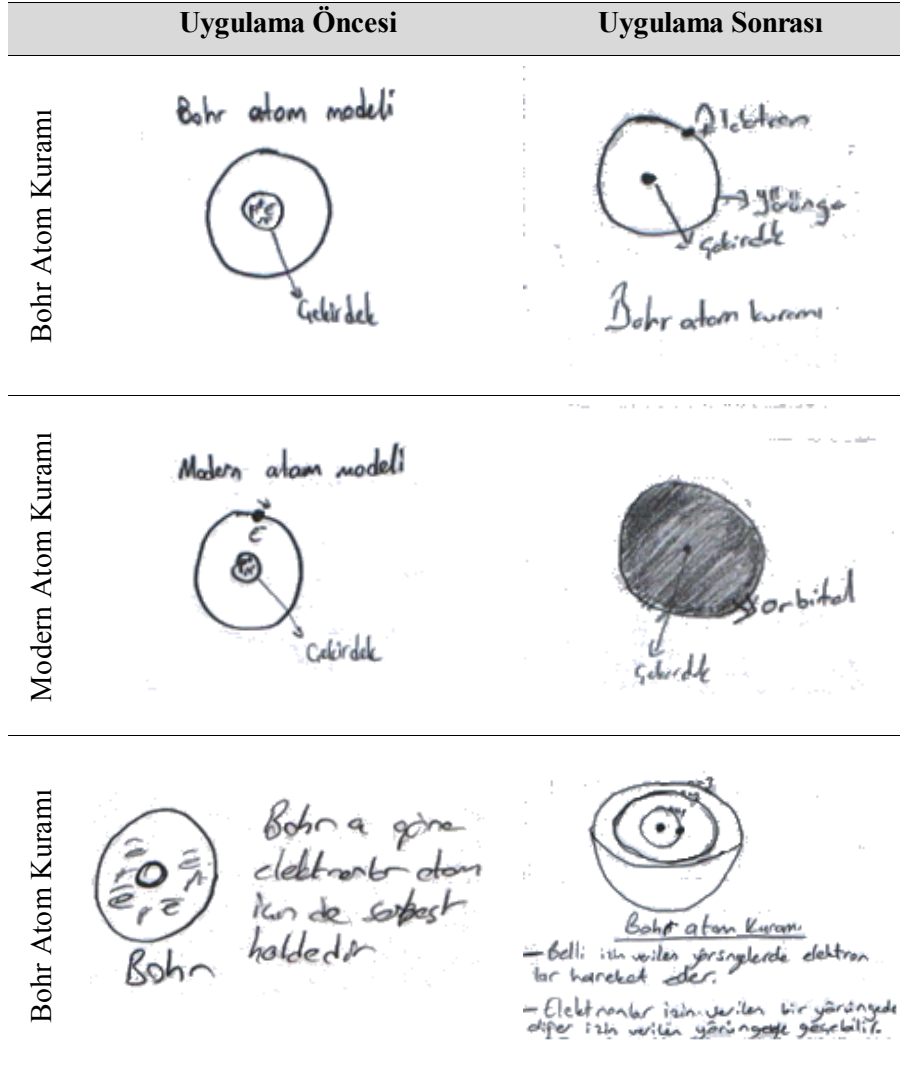 Uygulama Öncesi
Uygulama Sonrası
Bohr Atom Kuramı
Bohr atom modeli
Çekirdek
Elektron
yörünge
Çekirdek
Bohr atom kuramı
Modern Atom Kuramı
Modern atom modeli
e
Çekirdek
orbital
Çekirdek
Bohr Atom Kuramı
Bohr
Bohr a göre
elektronlar atom
için de serbest
haldedir
Bohr atom Kuramı
- Belli izin verilen yörüngelerde elektron
lar hareket eder.
- Elektronlar izin verilen bir yörüngede
diğer izin verilen yörüngeye geçebilir.